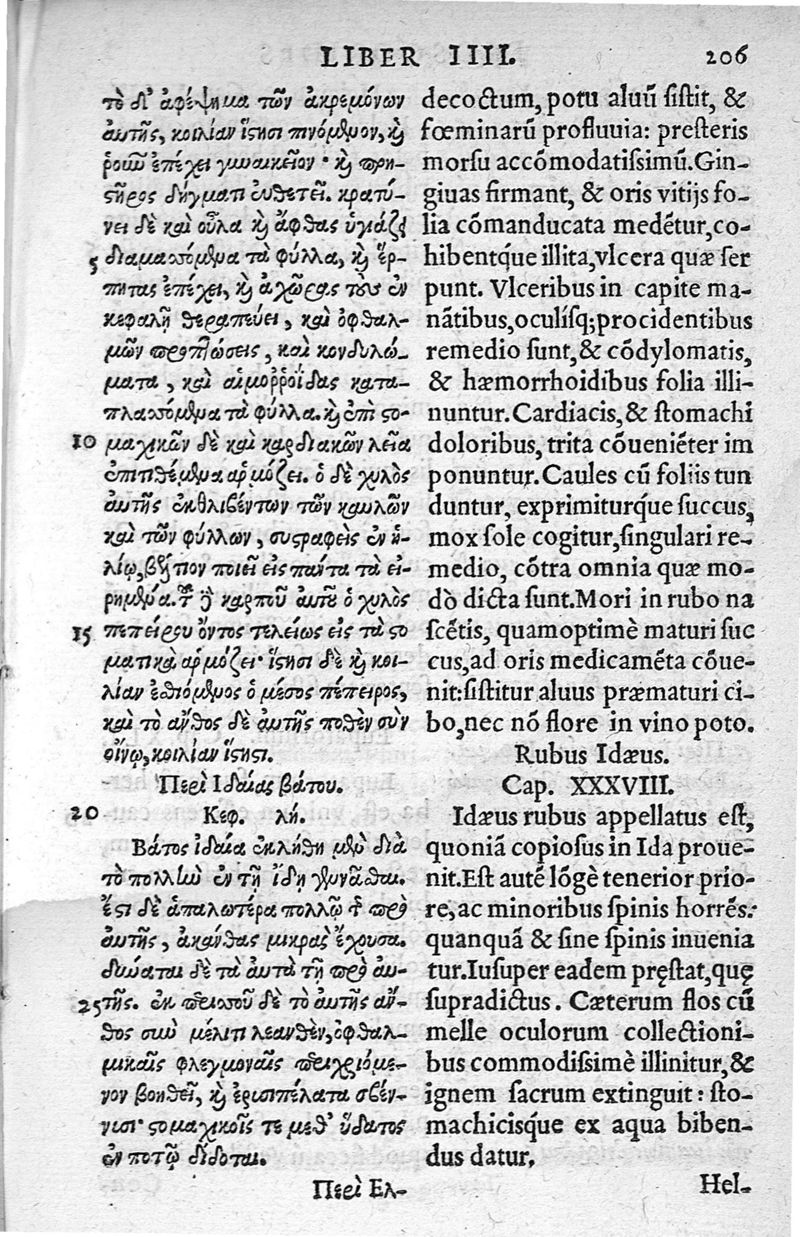 LIBER IIII. 206
τὸ δ' ἀφέψημα τῶν ἀκρεμόνων
αὐτῆς, κοιλίαν ἵστησι πινόμενον, καὶ
ῥοῦν ἐπέχει γυναικεῖον· καὶ πρη-
στῆρος δήγματι εὐθετεῖ. κρατύ-
νει δὲ καὶ οὖλα καὶ ἄφθας ὑγιάζει
5 διαμασσόμενα τὰ φύλλα, καὶ ἕρ-
πητας ἐπέχει, καὶ ἀχῶρας τοὺς ἐν
κεφαλῇ θεραπεύει, καὶ ὀφθαλ-
μῶν προπτώσεις, καὶ κονδυλώ-
ματα, καὶ αἱμορροΐδας κατα-
πλασσόμενα τὰ φύλλα. καὶ ἐπὶ στο-
10 μαχικῶν δὲ καὶ καρδιακῶν λεῖα
ἐπιτιθέμενα ἁρμόζει. ὁ δὲ χυλὸς
αὐτῆς ἐκθλιβέντων τῶν καυλῶν
καὶ τῶν φύλλων, συστραφεὶς ἐν ἡ-
λίῳ, βέλτιον ποιεῖ εἰς πάντα τὰ εἰ-
ρημένα. τοῦ δὲ καρποῦ αὐτοῦ ὁ χυλὸς
15 πεπείρου ὄντος τελείως εἰς τὰ στο
ματικὰ ἁρμόζει· ἵστησι δὲ καὶ κοι-
λίαν ἐσθιόμενος ὁ μέσος πέπειρος,
καὶ τὸ ἄνθος δὲ αὐτῆς ποθὲν σὺν
οἴνῳ, κοιλίαν ἵστησι.
Περὶ Ιδαίας βάτου.
20 Κεφ. λή.
Βάτος ἰδαία ἐκλήθη μὲν διὰ
τὸ πολλὴν ἐν τῇ ἴδῃ γεννᾶσθαι.
ἔστι δὲ ἁπαλωτέρα πολλῷ τῆς πρὸ
αὐτῆς, ἀκάνθας μικρὰς ἔχουσα.
δύναται δὲ τὰ αὐτὰ τῇ πρὸ αὐ-
25 τῆς. ἐκ περισσοῦ δὲ τὸ αὐτῆς ἄν-
θος σὺν μέλιτι λεανθὲν, ὀφθαλ-
μικαῖς φλεγμοναῖς περιχριόμε-
νον βοηθεῖ, καὶ ἐρισιπέλατα σβέν-
νυσι· στομαχικοῖς τε μεθ' ὕδατος
ἐν ποτῷ δίδοται.
Περὶ Ελ-
decoctum, potu aluũ sistit, &
fœminarũ profluuia: presteris
morsu accõmodatissimũ. Gin-
giuas firmant, & oris vitijs fo-
lia cõmanducata medẽtur, co-
hibentq́ue illita, vlcera quæ ser
punt. Vlceribus in capite ma-
nãtibus, oculisq; procidentibus
remedio sunt, & cõdylomatis,
& hæmorrhoidibus folia illi-
nuntur. Cardiacis, & stomachi
doloribus, trita cõueniẽter im
ponuntur. Caules cũ foliis tun
duntur, exprimiturq́ue succus,
mox sole cogitur, singulari re-
medio, cõtra omnia quæ mo-
dò dicta sunt. Mori in rubo na
scẽtis, quamoptimè maturi suc
cus, ad oris medicamẽta cõue-
nit: sistitur aluus præmaturi ci-
bo, nec nõ flore in vino poto.
Rubus Idæus.
Cap. XXXVIII.
Idæus rubus appellatus est,
quoniã copiosus in Ida proue-
nit. Est autẽ lõgè tenerior prio-
re, ac minoribus spinis horrẽs:
quanquã & sine spinis inuenia
tur. Iusuper eadem pręstat, quę
supradictus. Cæterum flos cũ
melle oculorum collectioni-
bus commodissimè illinitur, &
ignem sacrum extinguit: sto-
machicisq́ue ex aqua biben-
dus datur.
Hel-